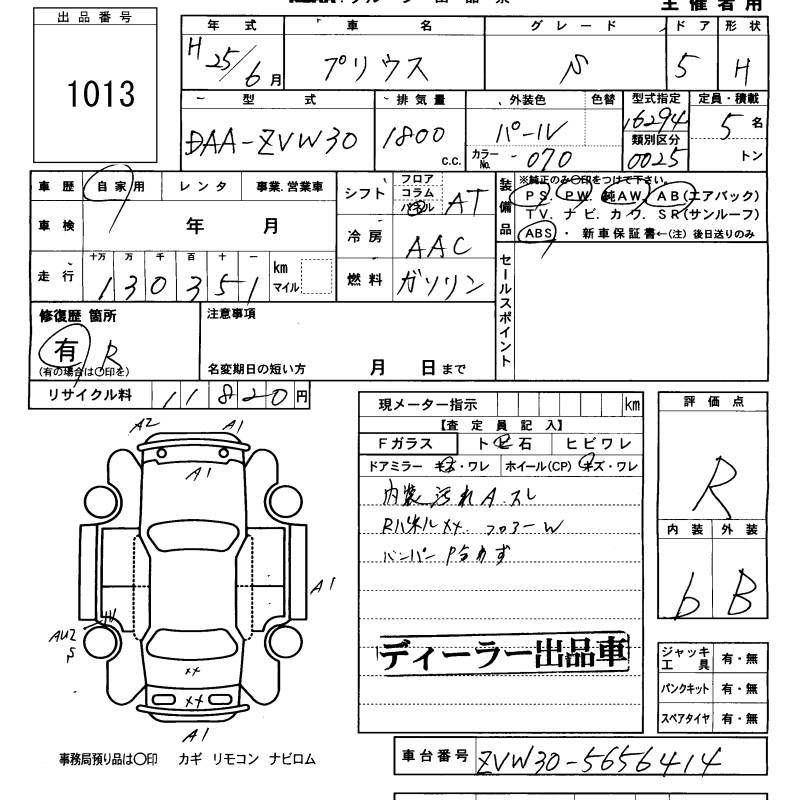 主催者用
出品番号
1013
年式 車名 グレード ドア 形状
H 25/6月 プリウス S 5 H
型式 排気量 外装色 色替 型式指定 定員・積載
DAA-ZVW30 1800 c.c. パール 16294 5名
カラーNo. 070 類別区分 0025 トン
車歴 自家用 レンタ 事業.営業車
シフト フロア コラム パネル AT
装備品 ※純正のみ〇印をつけて下さい。
PS. PW. 純AW. AB(エアバック)
TV. ナビ. カワ. SR(サンルーフ)
ABS ・ 新車保証書←(注) 後日送りのみ
車検 年 月
冷房 AAC
走行 十万 万 千 百 十 一
130351 km マイル
燃料 ガソリン
セールスポイント
修復歴 箇所
有 R
(有の場合は〇印を)
注意事項
名変期日の短い方 月 日まで
リサイクル料 11820円
現メーター指示 km
【査定員記入】
Fガラス トビ石 ヒビワレ
ドアミラー キズ・ワレ ホイール(CP) キズ・ワレ
内装汚れA.スレ
Rパネルxx. フロアーW
バンパーPきわず
ディーラー出品車
評価点
R
内装 外装
b B
A2 A1
A1
A1
AU2
S
xx
xx
A1
ジャッキ工具 有・無
パンクキット 有・無
スペアタイヤ 有・無
事務局預り品は〇印 カギ リモコン ナビロム
車台番号 ZVW30-5656414